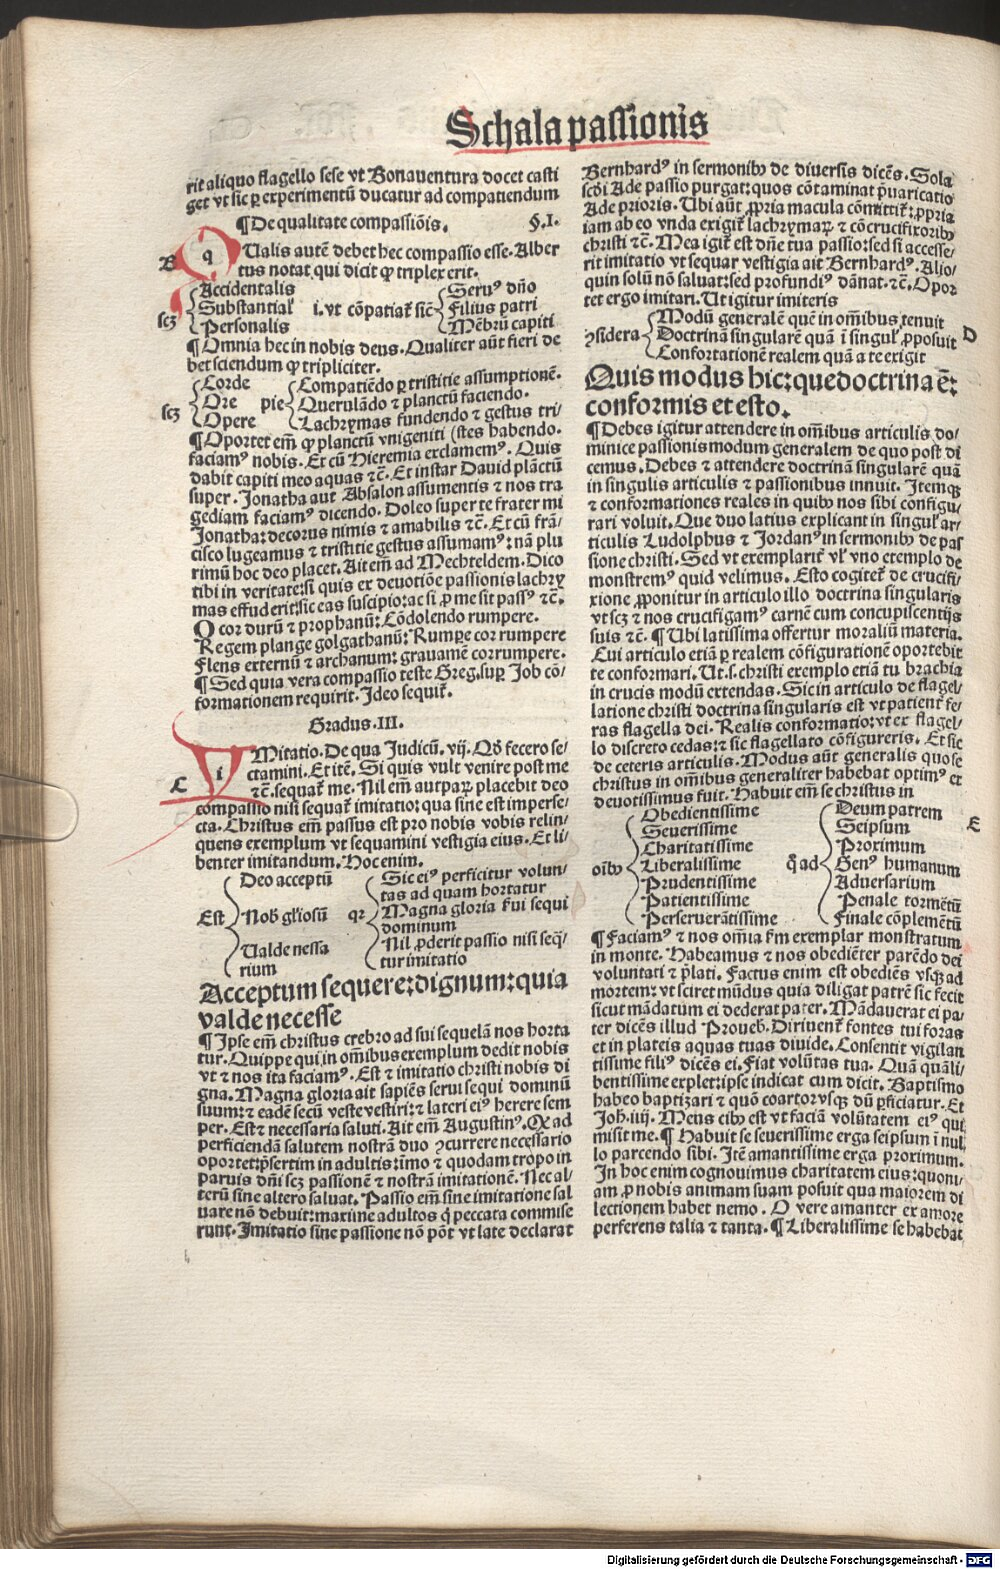 Schala passionis
rit aliquo flagello sese vt Bonauentura docet casti
get vt sic ꝑ experimentū ducatur ad compatiendum
¶ De qualitate compassiōis. §. I.
B
q
Ualis autē debet hec compassio esse. Alber
tus notat, qui dicit ꝙ triplex erit.
scꝫ
Accidentalis
Substantial'
Personalis
i. vt cōpatiat̄ sic̄
Seruꝰ dn̄o
Filius patri
Mēbrū capiti
¶ Omnia hec in nobis deus. Qualiter aūt fieri de
bet sciendum ꝙ tripliciter.
scꝫ
Corde
Ore
Opere
pie
Compatiēdo ꝑ tristitie assumptionē.
Querulādo ⁊ planctū faciendo.
Lachrymas fundendo ⁊ gestus tri-
¶ Oportet em̄ ꝙ planctū vnigeniti (stes habendo.
faciamꝰ nobis. Et cū Hieremia exclamemꝰ. Quis
dabit capiti meo aquas ⁊c̄. Et instar Dauid plāctū
super. Jonatha aut Absalon assumentis ⁊ nos tra
gediam faciamꝰ dicendo. Doleo super te frater mi
Jonatha: decorus nimis ⁊ amabilis ⁊c̄. Et cū frā/
cisco lugeamus ⁊ tristitie gestus assumamꝰ: nā plu
rimū hoc deo placet. Ait em̄ ad Mechteldem. Dico
tibi in veritate: si quis ex deuotiōe passionis lachry
mas effuderit: sic eas suscipio: ac si ꝓ me sit passꝰ ⁊c̄.
O cor durū ⁊ prophanū: Cōdolendo rumpere.
Regem plange golgathanū: Rumpe cor rumpere
Flens externū ⁊ archanum: grauamē corrumpere.
¶ Sed quia vera compassio teste Greg. suꝑ Job cō/
formationem requirit. Ideo sequit̄.
Gradus. III.
C
i
Mitatio. De qua Judicū. vij. Qd̄ fecero se-
ctamini. Et itē. Si quis vult venire post me
⁊c̄. sequat̄ me. Nil em̄ aut paꝝ placebit deo
compassio nisi sequat̄ imitatio: qua sine est imperfe-
cta. Christus em̄ passus est pro nobis vobis relin/
quens exemplum vt sequamini vestigia eius. Et li-
benter imitandum. Hoc enim.
Est
Deo acceptū
Nob' gl'iosū
Ualde nessa
rium
qꝛ
Sic eiꝰ perficitur volun/
tas ad quam hortatur
Magna gloria ē̄ui sequi
dominum
Nil ꝓderit passio nisi seq̄/
tur imitatio
Acceptum sequere: dignum: quia
valde necesse
¶ Ipse em̄ christus crebro ad sui sequelā nos horta
tur. Quippe qui in om̄ibus exemplum dedit nobis
vt ⁊ nos ita faciamꝰ. Est ⁊ imitatio christi nobis di
gna. Magna gloria ait sapiēs serui sequi dominū
suum: ⁊ eadē secū veste vestiri: ⁊ lateri eiꝰ herere sem
per. Est ⁊ necessaria saluti. Ait em̄ Augustinꝰ. Qꝫ ad
perficiendā salutem nostrā duo ꝯcurrere necessario
oportet: p̄sertim in adultis: īmo ⁊ quodam tropo in
paruis dn̄i scꝫ passionē ⁊ nostrā imitationē. Nec al-
terū sine altero saluat. Passio em̄ sine imitatione sal
uare nō debuit: maxime adultos q̄ peccata commise
runt. Imitatio sine passione nō pōt vt late declarat
Bernhardꝰ in sermonibꝫ de diuersis dicēs. Sola
scd̄i Ade passio purgat: quos cōtaminat p̄uaricatio
Ade prioris. Ubi aūt ꝓpria macula cōmittit̄: ꝓpria
iam ab eo vnda exigit̄ lachrymaꝝ ⁊ cōcrucifixoribꝫ
christi ⁊c̄. Mea igit̄ est dn̄e tua passio: sed si accesse-
rit imitatio vt sequar vestigia ait Bernhardꝰ. Alio/
quin solū nō saluat: sed profundiꝰ dānat. ⁊c̄. Opor
tet ergo imitari. Ut igitur imiteris
ꝯsidera
Modū generalē quē in om̄ibus tenuit
Doctrinā singularē quā ī singul' ꝓposuit
Confortationē realem quā a te exigit
D
Quis modus hic: que doctrina ē:
conformis et esto.
¶ Debes igitur attendere in om̄ibus articulis do/
minice passionis modum generalem de quo post di
cemus. Debes ⁊ attendere doctrinā singularē quā
in singulis articulis ⁊ passionibus innuit. Itemqꝫ
⁊ conformationes reales in quibꝫ nos sibi configu/
rari voluit. Que duo latius explicant in singul' ar/
ticulis Ludolphus ⁊ Jordanꝰ in sermonibꝫ de pas
sione christi. Sed vt exemplarit̄ vl' vno exemplo de
monstremꝰ quid velimus. Esto cogitet̄ de crucifi/
xione ꝓponitur in articulo illo doctrina singularis
vt scꝫ ⁊ nos crucifigamꝰ carnē cum concupiscentijs
suis ⁊c̄. ¶ Ubi latissima offertur moraliū materia.
Cui articulo etiā ꝑ realem cōfigurationē oportebit
te conformari. Ut. s. christi exemplo etiā tu brachia
in crucis modū extendas. Sic in articulo de flagel/
latione christi doctrina singularis est vt patient̄ fe/
ras flagella dei. Realis conformatio: vt ex flagel/
lo discreto cedas: ⁊ sic flagellato cōfigureris. Et sic
de ceteris articulis. Modus aūt generalis quo se
christus in om̄ibus generaliter habebat optimꝰ et
deuotissimus fuit. Habuit em̄ se christus in
oībꝫ
Obedientissime
Seuerissime
Charitatissime
Liberalissime
Prudentissime
Patientissime
Perseuerātissime
q̊ ad
Deum patrem
Seipsum
Proximum
Genꝰ humanum
Aduersarium
Penale tormētū
Finale cōplemētū
E
¶ Faciamꝰ ⁊ nos om̄ia ẜm exemplar monstratum
in monte. Habeamus ⁊ nos obediēter parēdo dei
voluntati ⁊ p̄lati. Factus enim est obediēs vsqꝫ ad
mortem: vt sciret mūdus quia diligat patrē sic fecit
sicut mādatum ei dederat pater. Mādauerat ei pa/
ter dicēs illud Proueb. Diriuent̄ fontes tui foras
et in plateis aquas tuas diuide. Consentit vigilan
tissime filiꝰ dicēs ei. Fiat volūtas tua. Quā quāli/
bentissime explet: ipse indicat cum dicit. Baptismo
habeo baptizari ⁊ quō coartor vsqꝫ dū ꝑficiatur. Et
Joh. iiij. Meus cibꝫ est vt faciā volūtatem eiꝰ qui
misit me. ¶ Habuit se seuerissime erga seipsum ī nul
lo parcendo sibi. Itē amantissime erga proximum.
In hoc enim cognouimus charitatem eius: quoni/
am ꝓ nobis animam suam posuit qua maiorem di
lectionem habet nemo. O vere amanter ex amore
perferens talia ⁊ tanta. ¶ Liberalissime se habebat
Digitalisierung gefördert durch die Deutsche Forschungsgemeinschaft - DFG